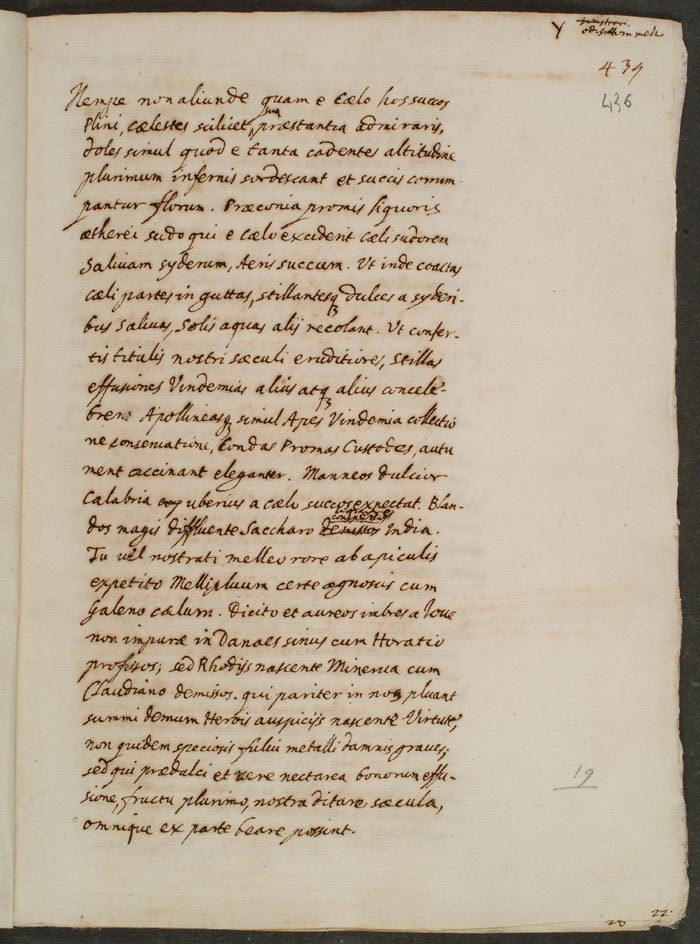 Y
439
436
Nempe non aliunde quam e Cælo hos succos
Plini, cælestes scilicet, sua præstantia admiraris,
doles simul quod e tanta cadentes altitudine
plurimum infernis sordescant et succis corrum-
pantur florum. Præconia promis liquoris
ætherei sudo qui e cælo exciderit cæli sudorem
Salivam syderum, Aeris succum. Ut inde coactas
cæli partes in guttas, stillantesq3 dulces a syderi-
bus Salivas, Solis aquas alij recolant. Ut confer-
tis titulis nostri sæculi eruditiores, stillas
effusiones Vindemias alius atq3 alius concele-
brent Apollineasq3 simul Apes Vindemia collectio
ne conservatione, Condas Promas Custodes, autu
ment cæcinant eleganter. Manneos dulcior
Calabria uberius a cælo succos expectat. Blan-
dos magis diffluente Saccharo India.
Tu vel nostrati melleo rore ab apiculis
expetito Mellipluum certe agnoscis cum
Galeno cælum. Dicito et aureos imbres a Iove
non impuræ in Danaes sinus cum Horatio
profusos; sed Rhodijs nascente Minerva cum
Claudiano demissos. qui pariter in nos pluant
summi demum Herois auspicijs nascente Virtute,
non quidem speciosis fulvi metalli damnis graves;
sed qui prædulci et vere nectarea bonorum effu-
sione, fructu plurimo, nostra ditare sæcula,
omnique ex parte beare possint.
19
22